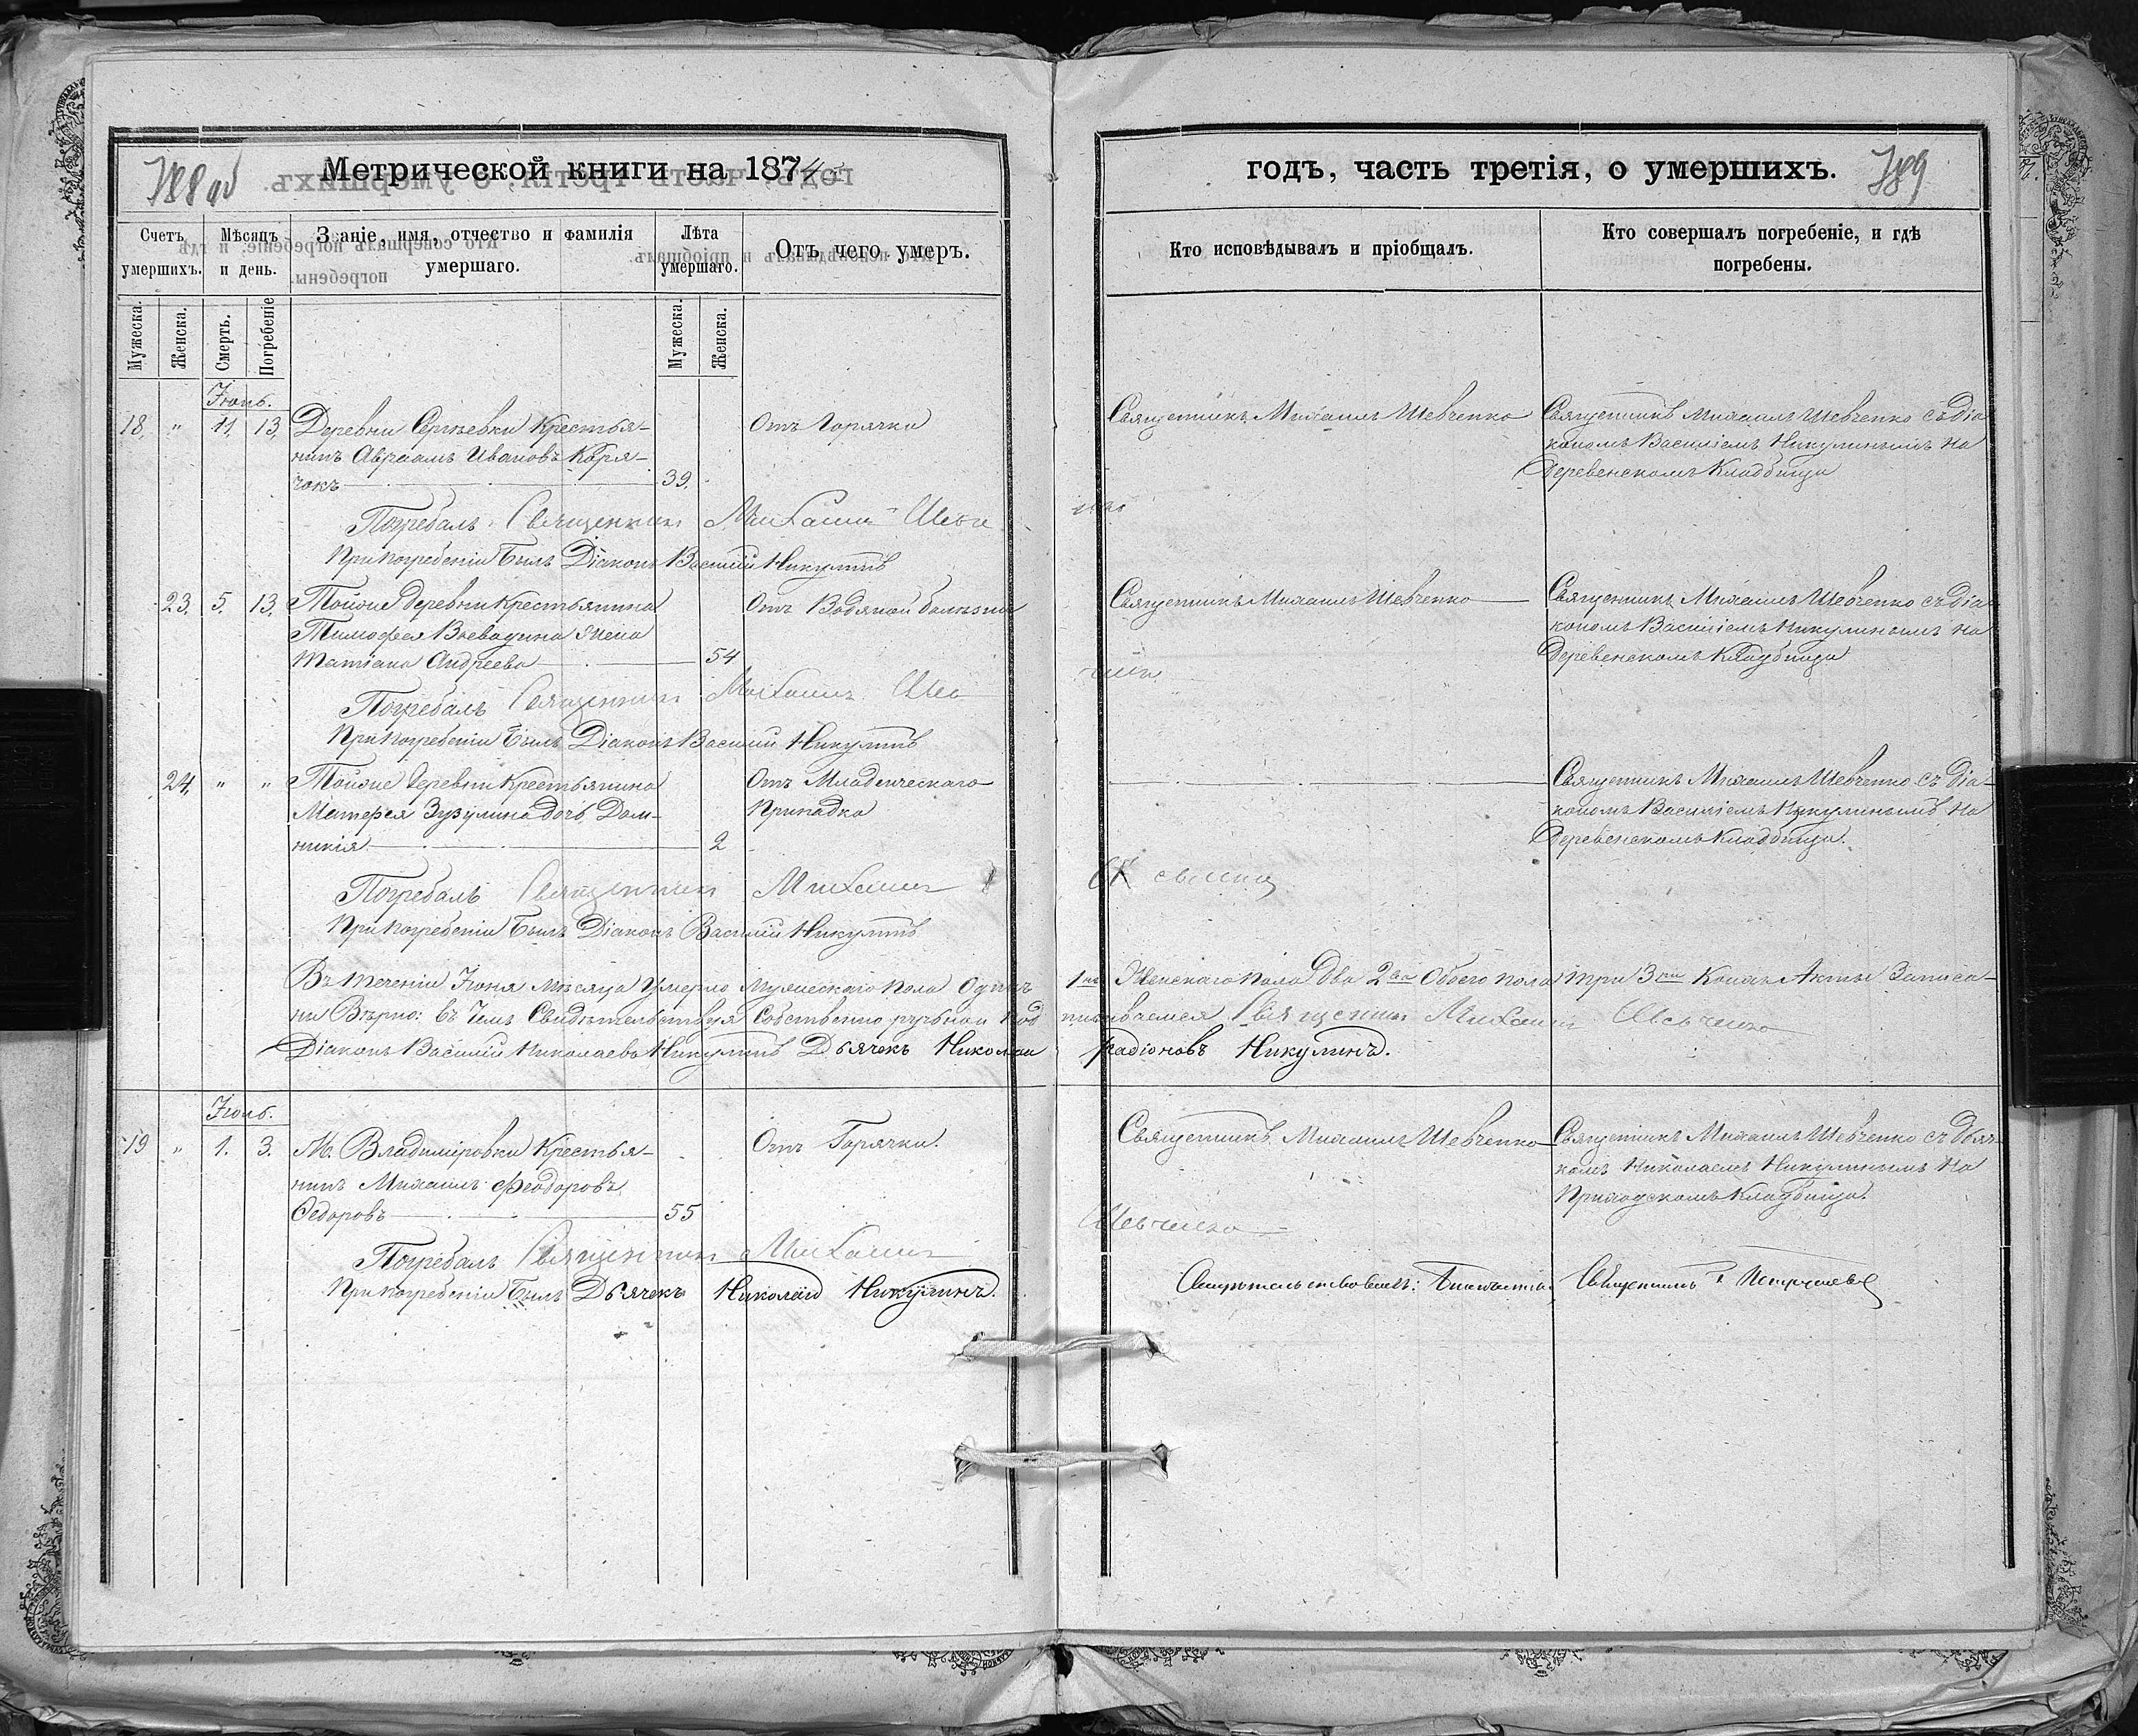 788 об
Метрической книги на 1874
Счетъ умершихъ.
Мѣсяцъ и день.
Званіе, имя, отчество и фамилія умершаго.
Лѣта умершаго.
Отъ чего умеръ.
Мужеска.
Женска.
Смерть.
Погребеніе
Мужеска.
Женска.
Іюнь.
18. " 11. 13. Деревни Сергѣевки Крестья- Отъ Горячки
нинъ Авраамъ Ивановъ Коря-
чокъ 39.
Погребалъ Священникъ Михаилъ Шевче
При погребеніи былъ Діаконъ Василій Никулинъ
23. 5. 13. Тойже деревни Крестьянина Отъ Водяной болѣзни
Тимофея Воеводина жена
Татіана Андреева 54
Погребалъ Священникъ Михаилъ Шев
При погребеніи былъ Діаконъ Василій Никулинъ
24. " " Тойже деревни Крестьянина Отъ Младенческаго
Матфея Зузулина дочь Дом- Припадка
никія 2
Погребалъ Священникъ Михаилъ
При погребеніи былъ Діаконъ Василій Никулинъ
Въ теченіи Іюня Мѣсяца Умерло Мужескаго пола Одинъ
ны Вѣрно: въ чемъ Свидѣтельствуя Собственно ручною под
Діаконъ Василій Николаевъ Никулинъ Дьячекъ Николаи
Іюль.
19 " 1. 3. М. Владиміровки Крестья- Отъ Горячки.
нинъ Михаилъ Феодоровъ
Федоровъ 55
Погребалъ Священникъ Михаилъ
При погребеніи былъ Дьячекъ Николай Никулинъ.
годъ, часть третія, о умершихъ.
789
Кто исповѣдывалъ и пріобщалъ.
Кто совершалъ погребеніе, и гдѣ погребены.
Священникъ Михаилъ Шевченко Священникъ Михаилъ Шевченко съ діа
кономъ Василіемъ Никулинымъ на
Деревенскомъ Кладбищѣ
Священникъ Михаилъ Шевченко Священникъ Михаилъ Шевченко съ діа-
кономъ Василіемъ Никулинымъ на
Деревенскомъ Кладбищѣ
Священникъ Михаилъ Шевченко съ діа-
кономъ Василіемъ Никулинымъ на
Деревенскомъ Кладбищѣ.
1нъ Женскаго пола два 2ва Обоего пола три 3ри Коихъ Акты Записа-
писываемся Священникъ Михаилъ Шевченко
Радіоновъ Никулинъ.
Священникъ Михаилъ Шевченко Священникъ Михаилъ Шевченко съ дьяч-
комъ Николаемъ Никулинымъ на
Приходскомъ Кладбищѣ.
Шевченко
Свидѣтельствовалъ: Священникъ